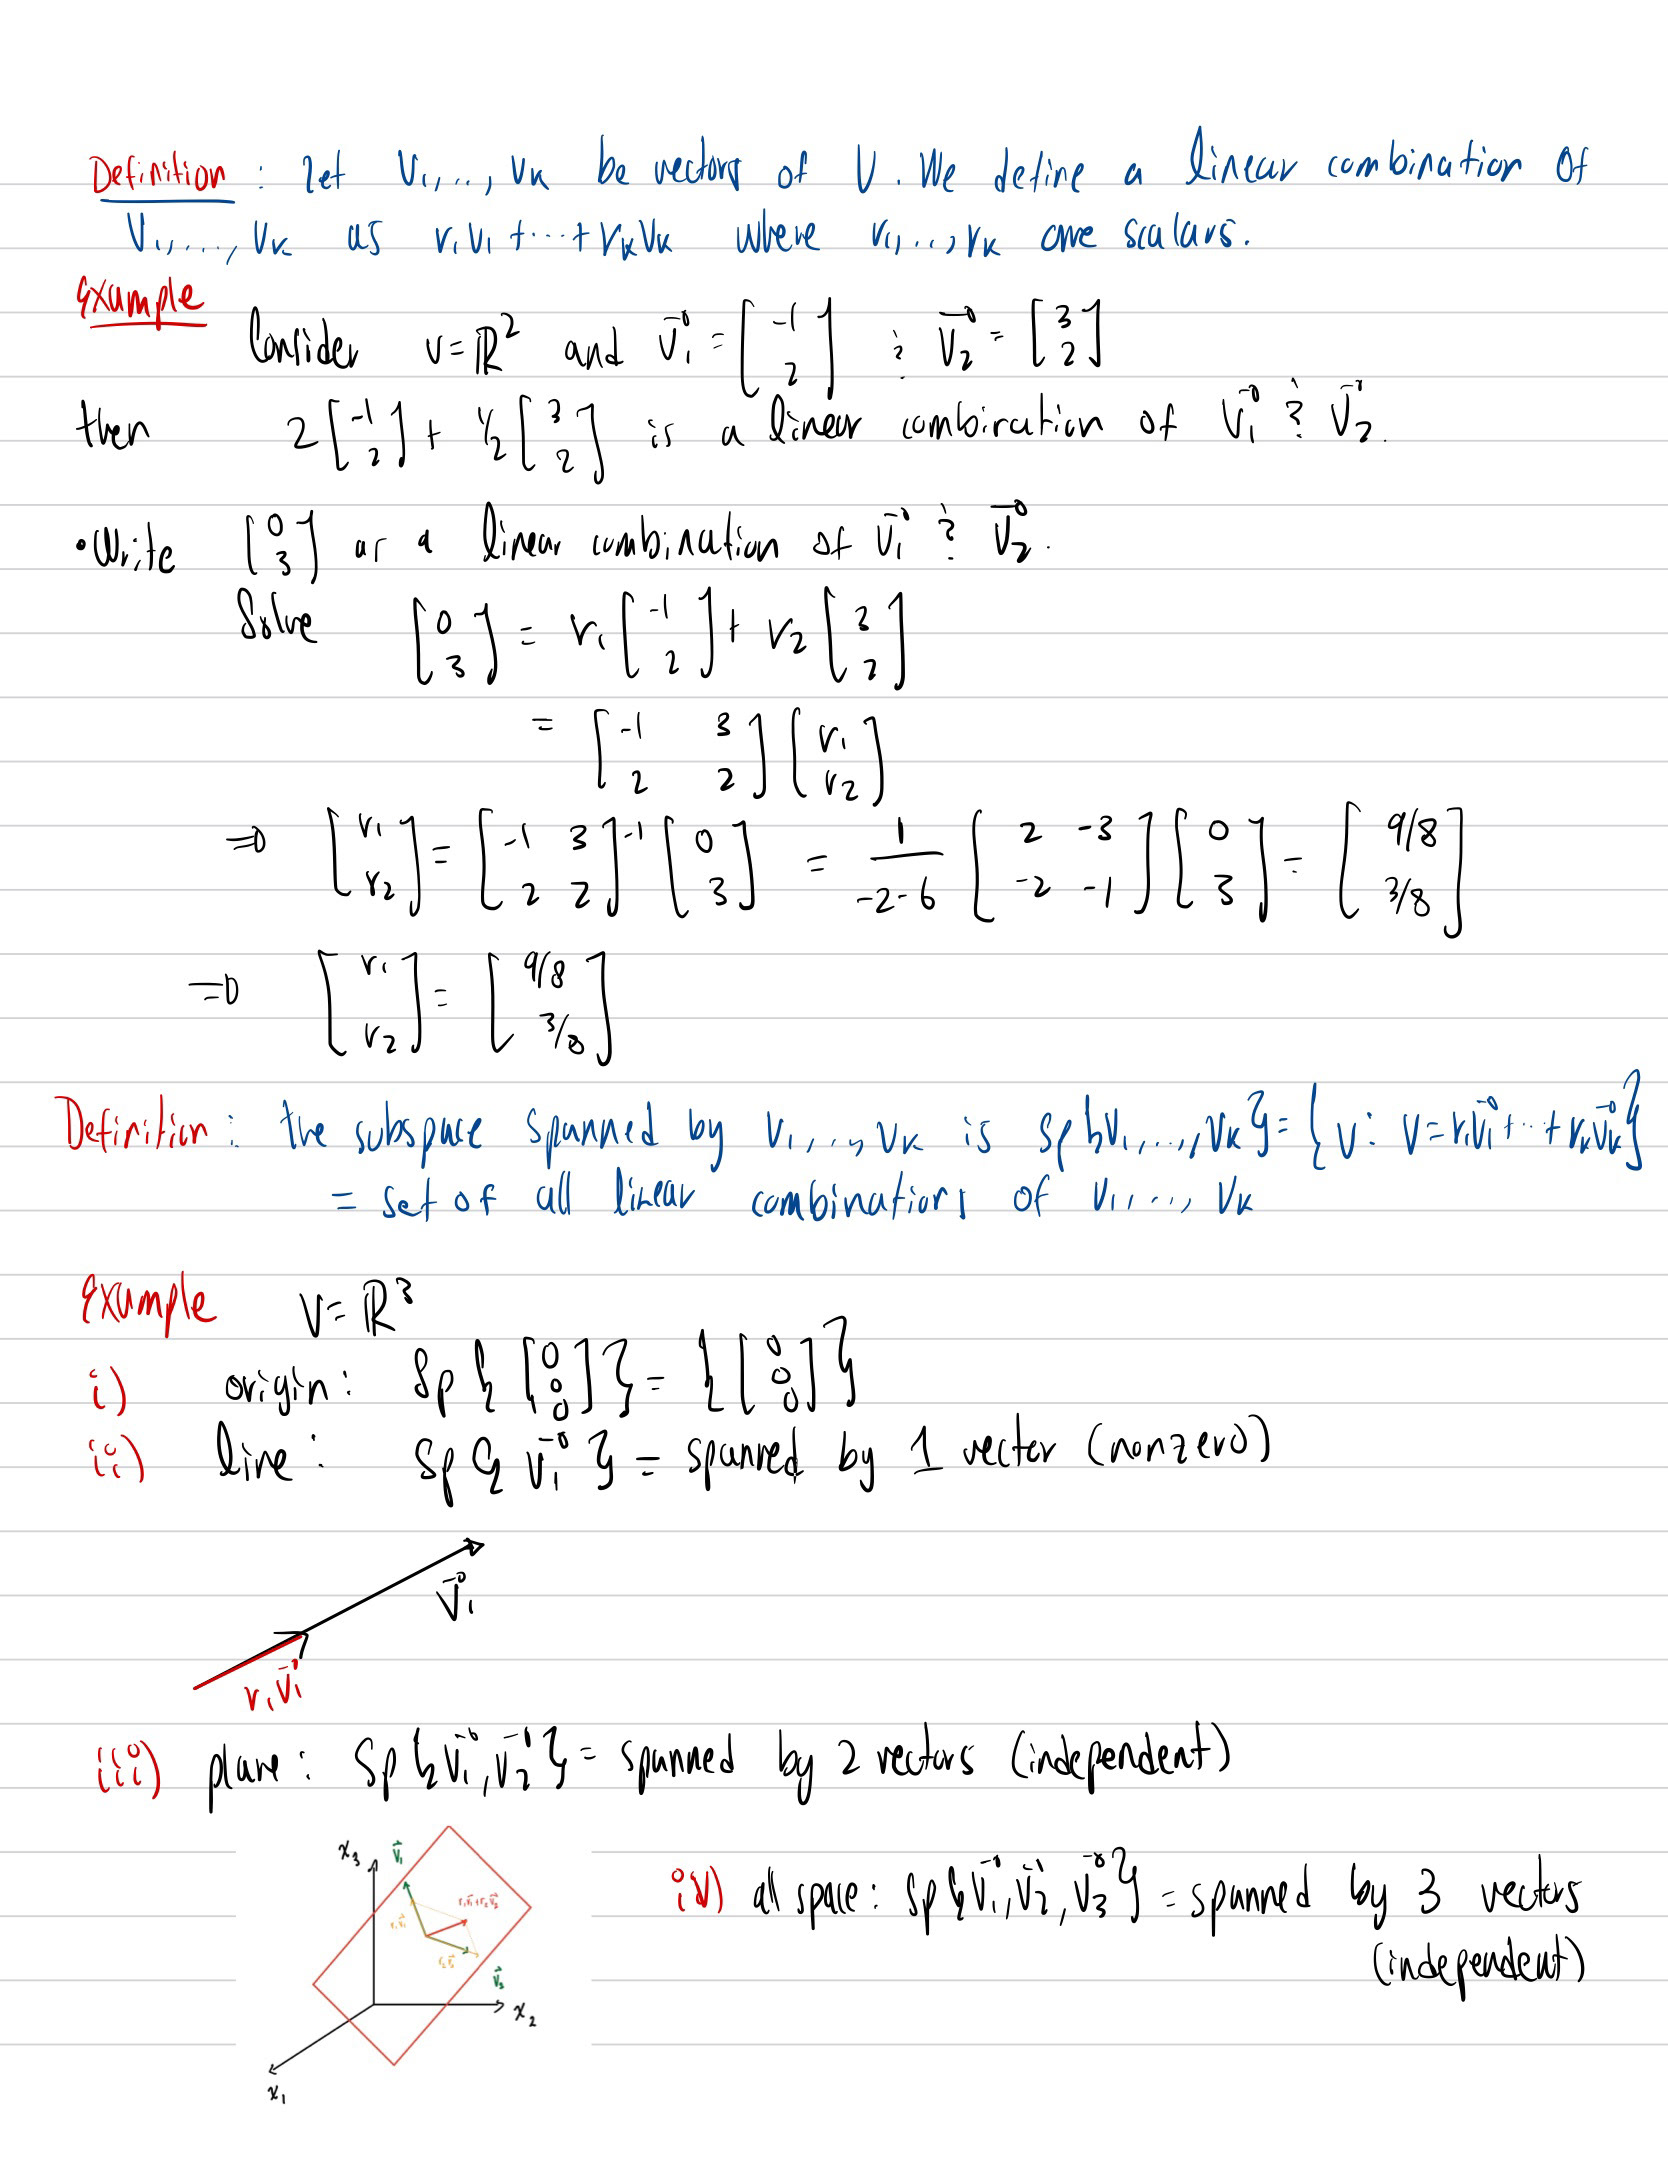 Definition : Let V₁,..,Vₖ be vectors of V. We define a linear combination of
V₁,...,Vₖ as r₁V₁+...+rₖVₖ where r₁,..,rₖ are scalars.
Example
Consider V=ℝ² and v⃗₁ = [-1 2] & v⃗₂ = [3 2]
then 2[-1 2] + 1/2[3 2] is a linear combination of v⃗₁ & v⃗₂.
•Write [0 3] as a linear combination of v⃗₁ & v⃗₂.
Solve [0 3] = r₁[-1 2] + r₂[3 2]
= [-1 3; 2 2][r₁ r₂]
⇒ [r₁ r₂] = [-1 3; 2 2]⁻¹[0 3] = 1/(-2-6) [2 -3; -2 -1][0 3] = [9/8 3/8]
⇒ [r₁ r₂] = [9/8 3/8]
Definition : the subspace spanned by V₁,..,Vₖ is Sp{V₁,...,Vₖ} = {V : V=r₁v⃗₁+..+rₖv⃗ₖ}
= set of all linear combinations of V₁,..., Vₖ
Example V=ℝ³
i) origin : Sp{[0 0 0]} = {[0 0 0]}
ii) line : Sp{v⃗₁} = spanned by 1 vector (nonzero)
v⃗₁
r₁v⃗₁
iii) plane : Sp{v⃗₁,v⃗₂} = spanned by 2 vectors (independent)
x₃ v⃗₁
r₁v⃗₁ r₁v⃗₁+r₂v⃗₂
r₂v⃗₂
v⃗₂
x₂
x₁
iv) all space : Sp{v⃗₁,v⃗₂,v⃗₃} = spanned by 3 vectors
(independent)